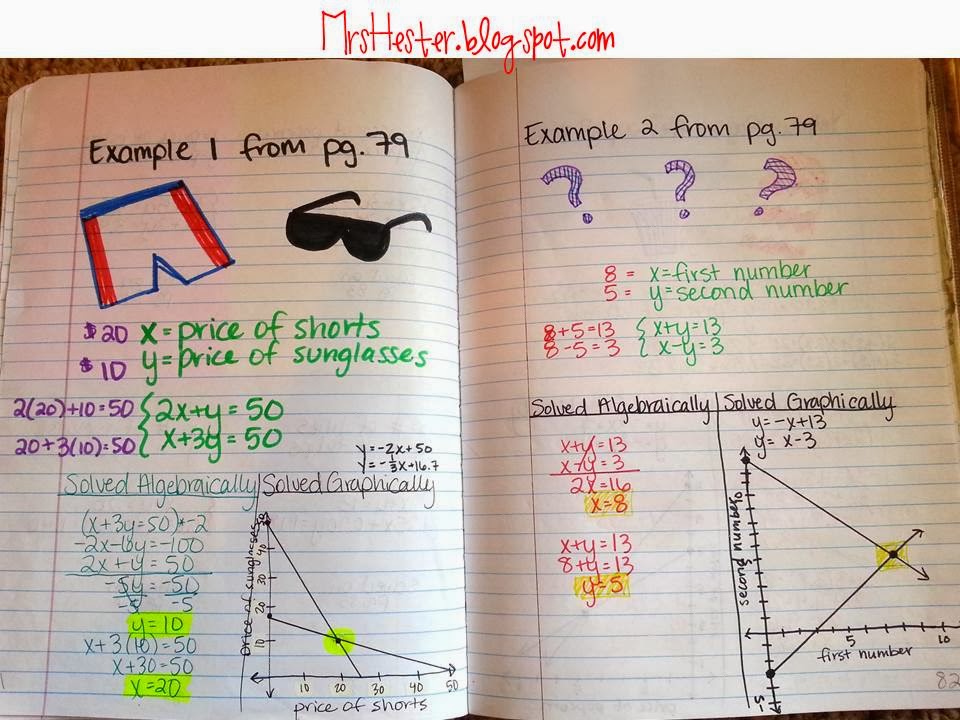 MrsHester.blogspot.com
Example 1 from pg. 79
$20 x = price of shorts
$10 y = price of sunglasses
2(20)+10=50 { 2x+y = 50
20+3(10)=50 { x+3y = 50
y=-2x+50
y=-1/3x+16.7
Solved Algebraically
(x+3y=50)*-2
-2x-6y=-100
2x+y=50
-5y=-50
-5 -5
y=10
x+3(10)=50
x+30=50
x=20
Solved Graphically
price of sunglasses
50
40
30
20
10
10 20 30 40 50
price of shorts
Example 2 from pg. 79
? ? ?
8 = x=first number
5 = y=second number
8+5=13 { x+y=13
8-5=3 { x-y=3
Solved Algebraically
x+y=13
x-y=3
2x=16
x=8
x+y=13
8+y=13
y=5
Solved Graphically
y=-x+13
y= x-3
second number
10
5 10
first number
-5
82